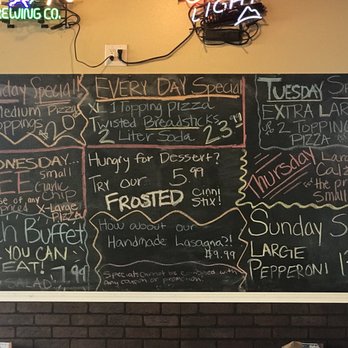 REWING CO.
EIGHT
day Special
Medium Pizza
oppings 20
EVERY DAY Special
XL 1 TOPPING PIZZA
Twisted Breadsticks
2 Liter Soda 23
TUESDAY SP
EXTRA LAR
2 TOPPING
PIZZA
DNESDAY...
EE small
Garlic
Chip
se of any
priced X-Large
Pizza
Hungry for Dessert?
TRY our 5.99
FROSTED Cinni
Stix!
Thursday
Larg
Calz
the pr
Small
ch Buffet
YOU CAN
EAT! 7.99
SALAD
How about our
Handmade Lasagna?!
$9.99
Specials cannot be combined with
any coupon or promotion.
Sunday S
LARGE
PEPPERONI 1